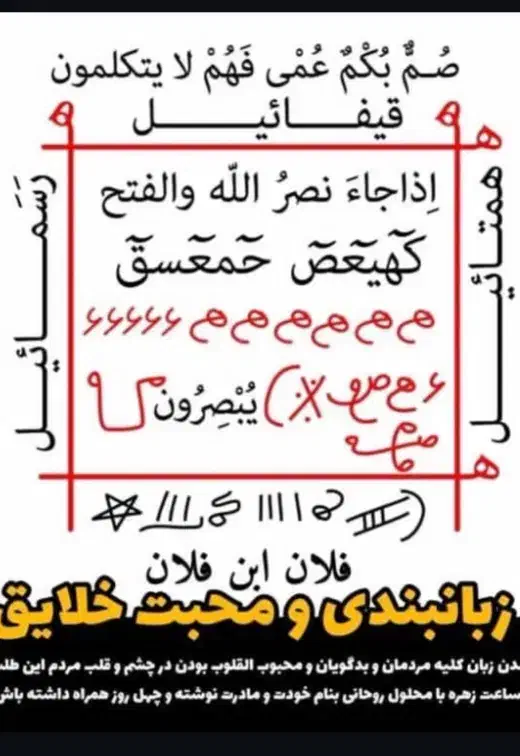 صُمٌّ بُكْمٌ عُمْى فَهُمْ لا يتكلمون
قيفـــائيـــل
همتـــائيـــل
رَسَمـــائيـــل
اِذاجاءَ نصرُ اللّه والفتح
كٓهيٓعٓصٓ حٓمٓعٓسقٓ
ه ه ه ه ه ه ۶۶۶۶۶۶
يُبْصِرُون
فلان ابن فلان
زبانبندی و محبت خلایق
دن زبان کلیه مردمان و بدگویان و محبوب القلوب بودن در چشم و قلب مردم این طل
ساعت زهره با محلول روحانی بنام خودت و مادرت نوشته و چهل روز همراه داشته باش